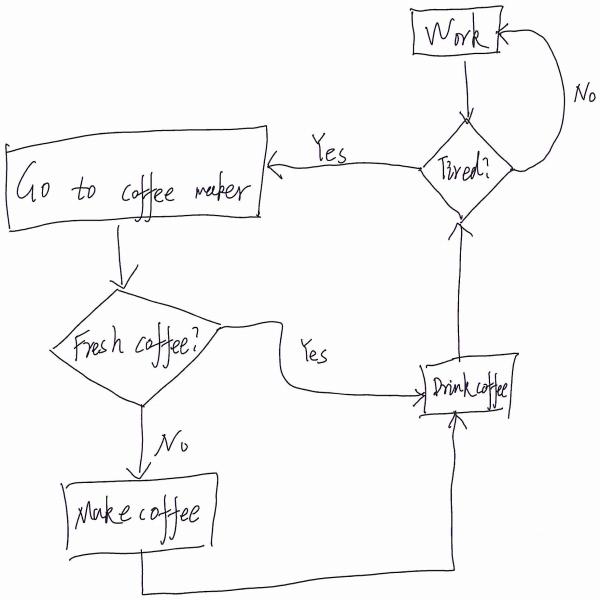 Work
No
Tired?
Yes
Go to coffee maker
Fresh coffee?
Yes
Drink coffee
No
Make coffee